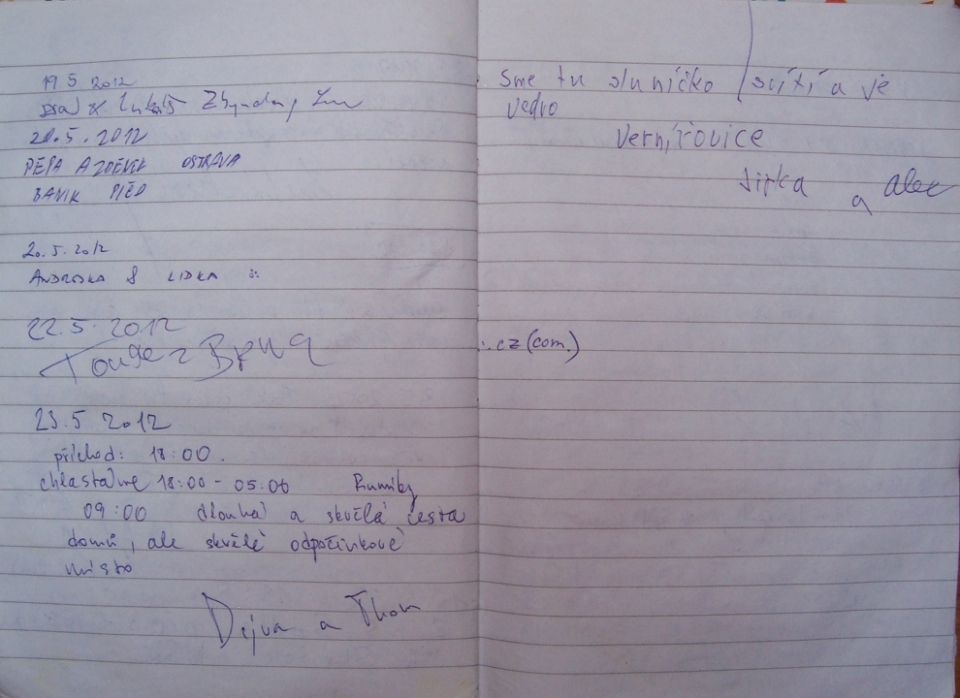 19.5 2012
Zbyndas
20.5.2012
PEPA A ZDENEK OSTRAVA
BANIK
20.5.2012
ANDREJKA & LIDKA
22.5.2012
z Brna
23.5 2012
příchod: 18:00.
chlastáme 18:00 - 05:00
09:00 dlouhá a skvělá cesta
domů, ale skvělé odpočinkové
místo
Dejva a Thom
Sme tu sluníčko svítí a je
vedro
Verníŕovice
Jirka a alex
.cz (com.)